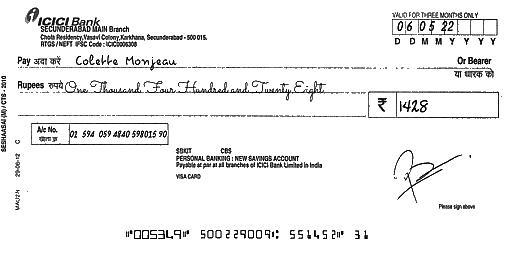 ICICI Bank
SECUNDERABAD MAIN Branch
Chola Residency, Vasavi Colony, Karkhana, Secunderabad - 500 015.
RTGS / NEFT IFSC Code : ICIC0006308
VALID FOR THREE MONTHS ONLY
060522
D D M M Y Y Y Y
Pay अदा करें Colette Monjeau Or Bearer
या धारक को
Rupees रुपये One Thousand Four Hundred and Twenty Eight
₹ 1428
A/c No. 01 594 059 4840 598015 90
SBKIT CBS
PERSONAL BANKING : NEW SAVINGS ACCOUNT
Payable at par at all branches of ICICI Bank Limited in India
VISA CARD
Please sign above
"005349" 500229009: 551452" 31